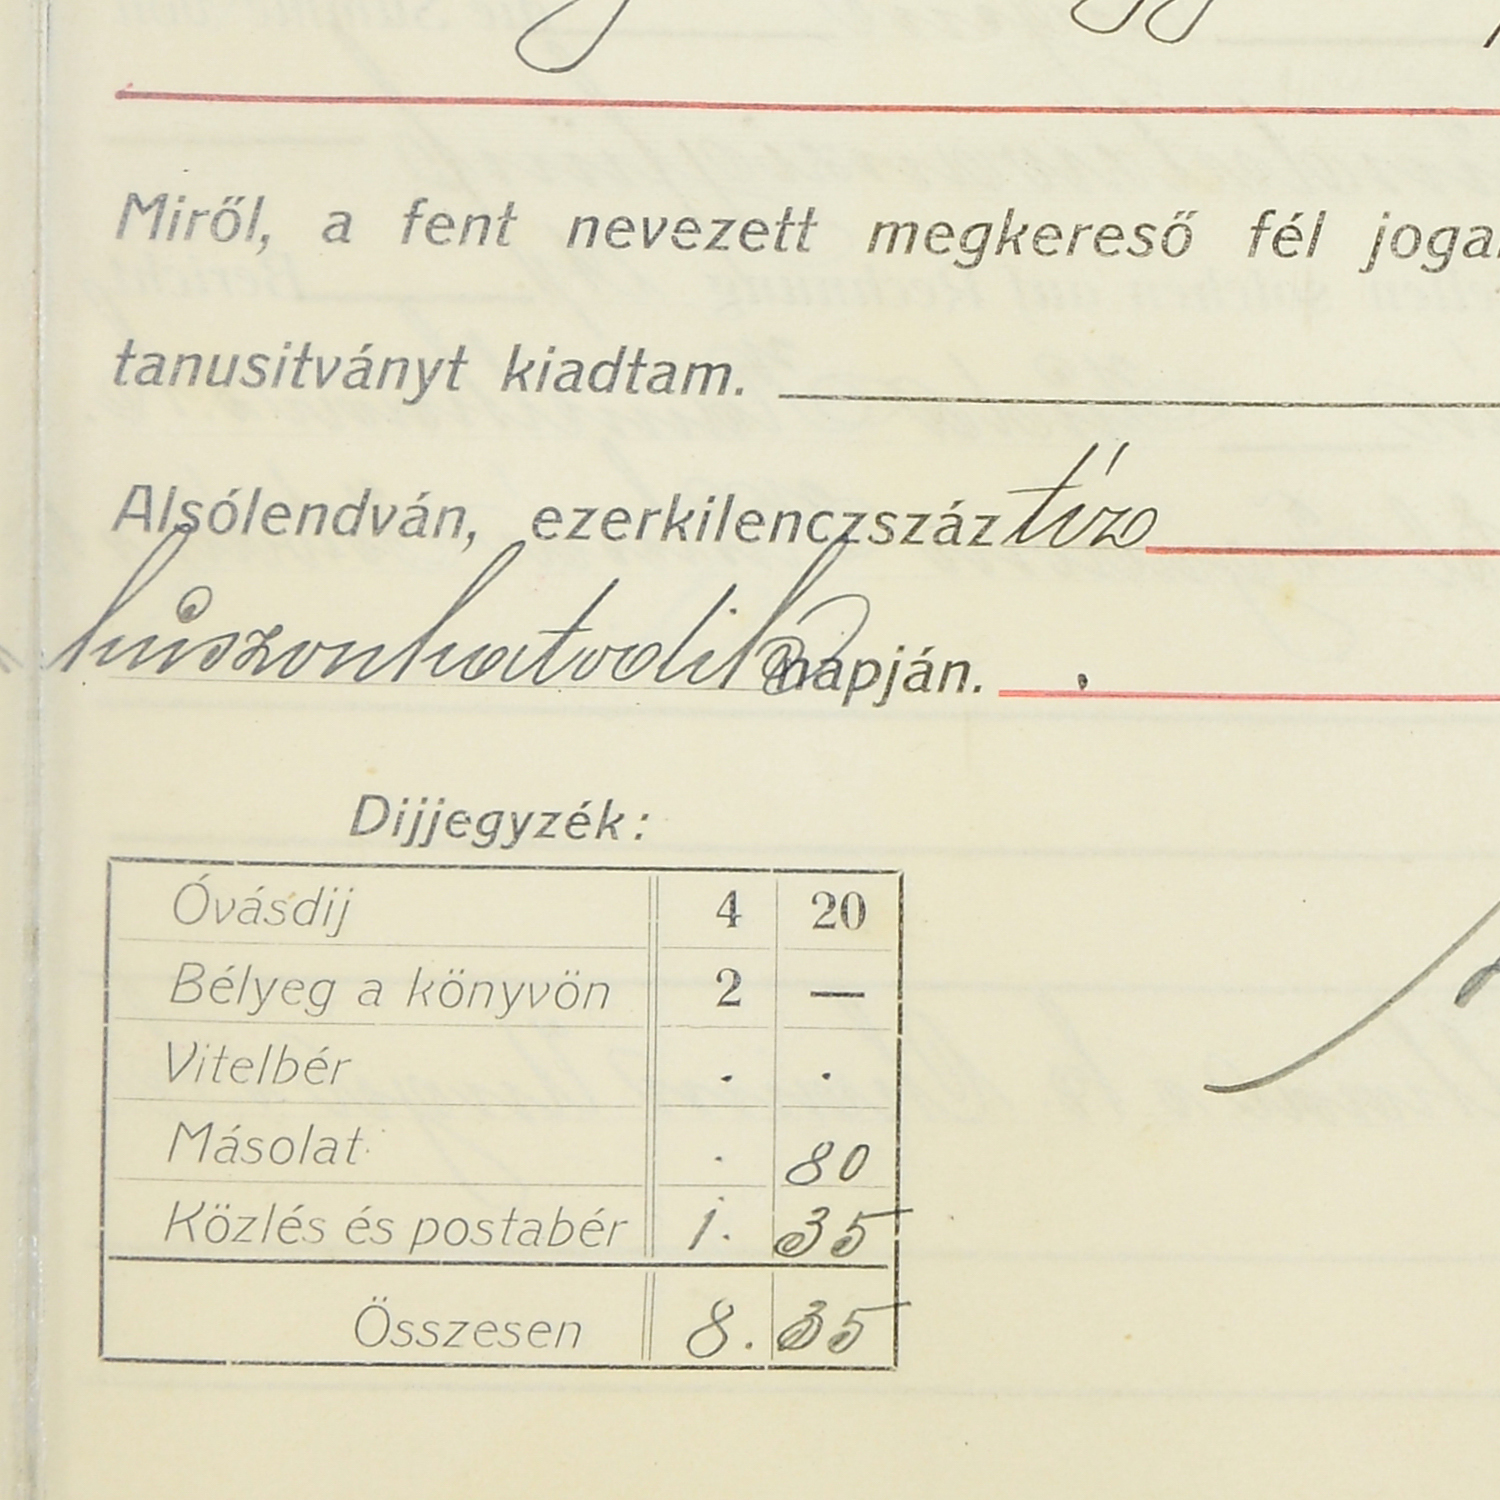 Miről, a fent nevezett megkereső fél joga
tanusitványt kiadtam.
Alsólendván, ezerkilenczszáz tíz
húszonhatodik napján.
Dijjegyzék:
Óvásdij 4 20
Bélyeg a könyvön 2 —
Vitelbér . .
Másolat . 80
Közlés és postabér 1. 35
Összesen 8. 35